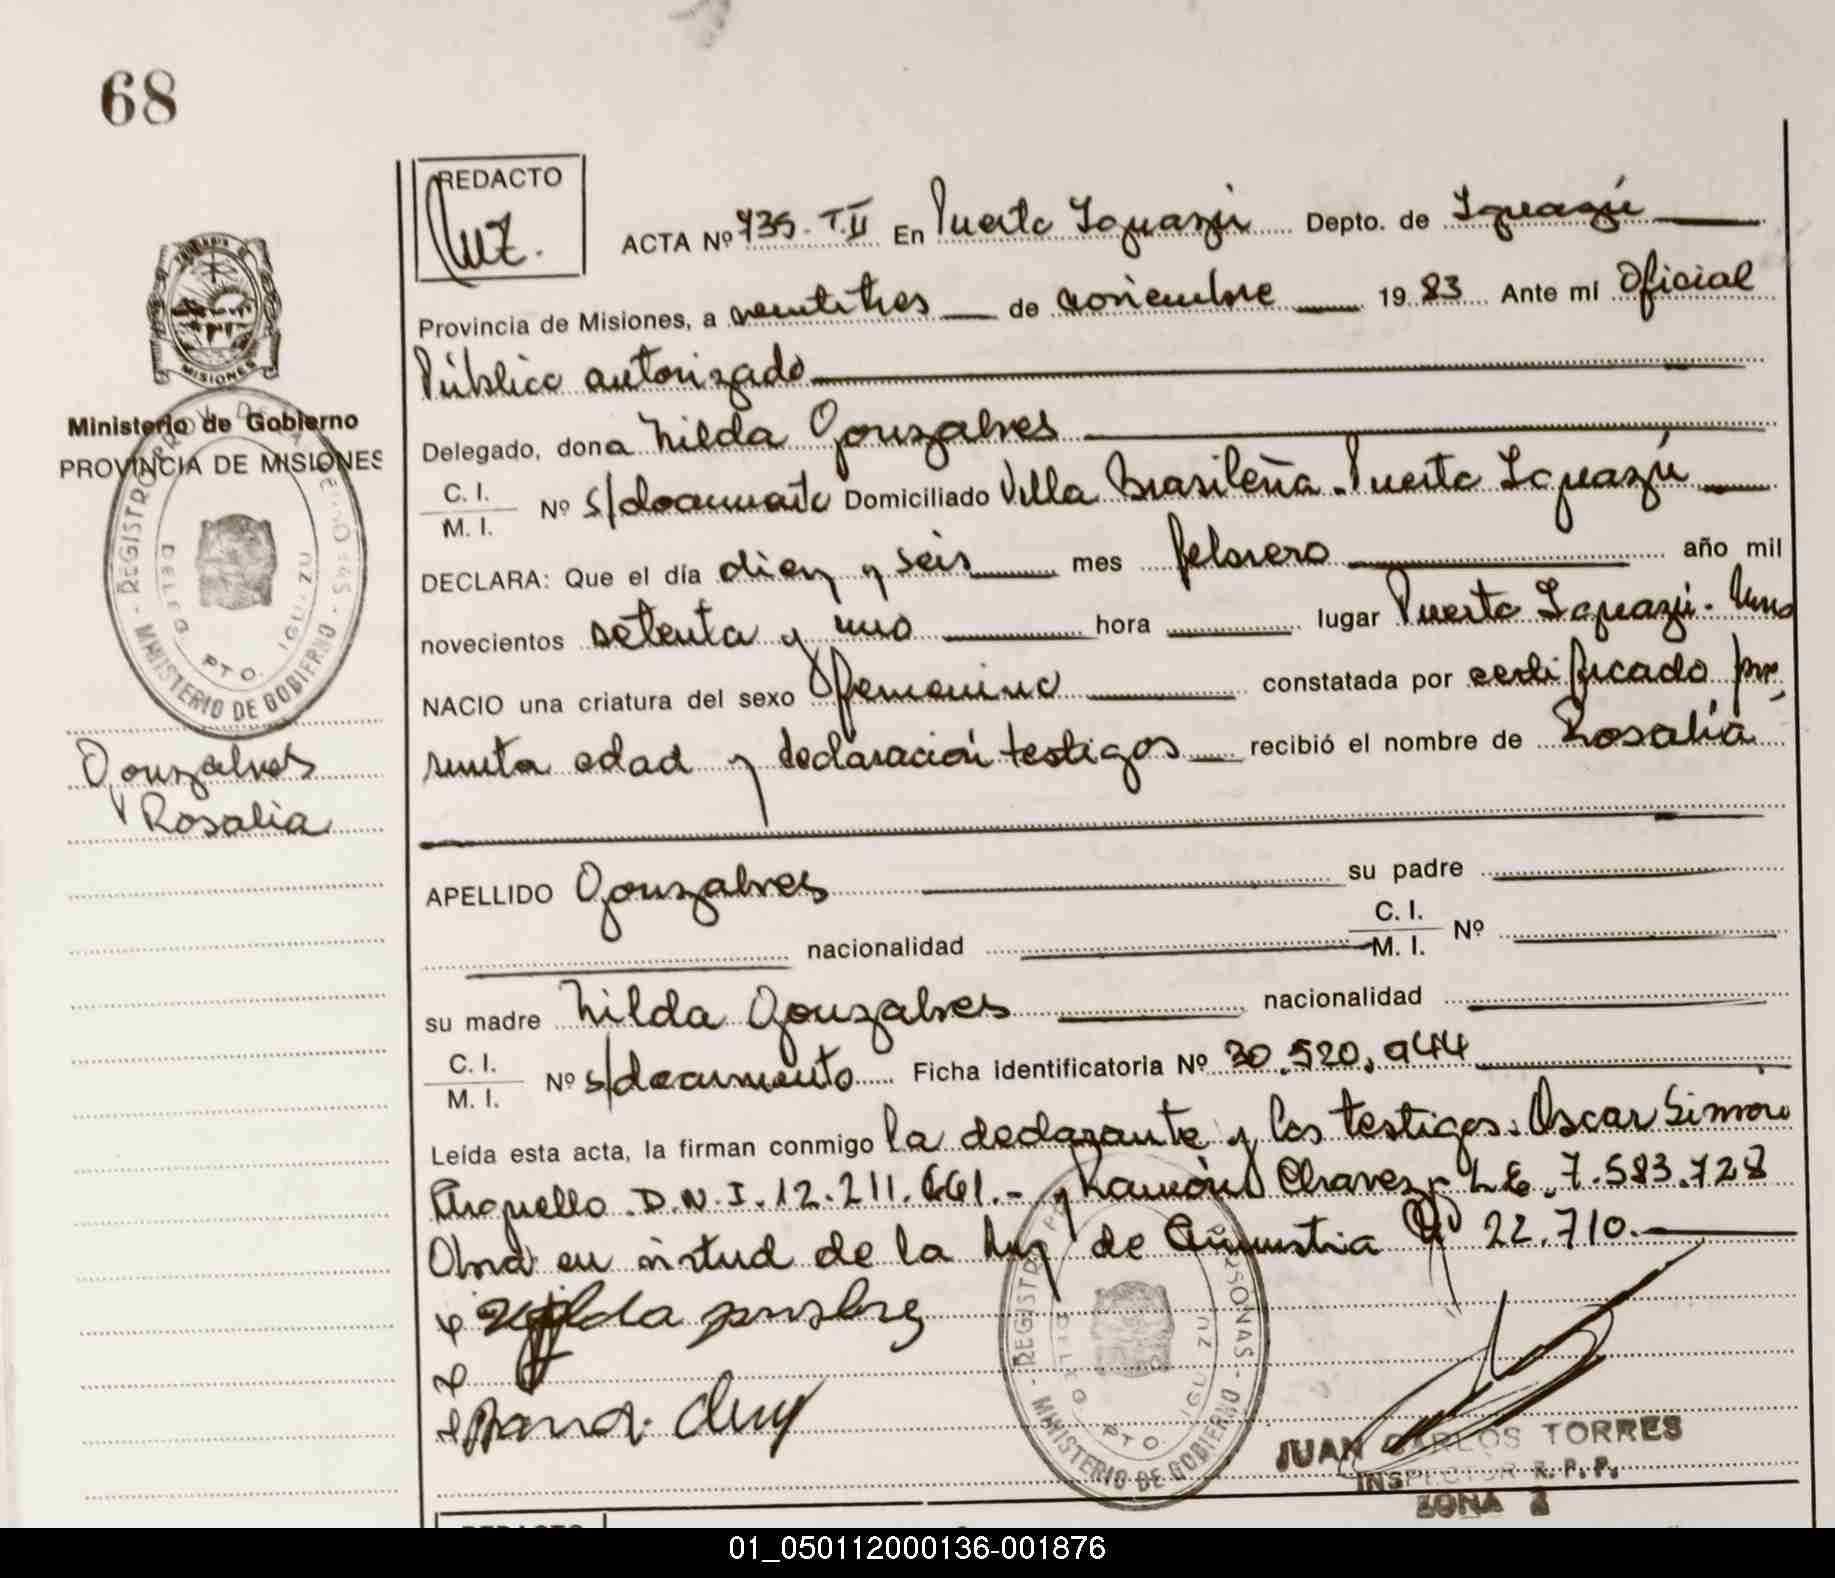 68
REDACTO
Luz.
ACTA Nº 735. T. II En Puerto Iguazú Depto. de Iguazú
Provincia de Misiones, a veintitres de noviembre 19 83 Ante mí Oficial
Público autorizado
Delegado, dona Nilda Gonzalves
C. I.
M. I. Nº s/documento Domiciliado Villa Brasileña. Puerto Iguazú
DECLARA: Que el día diez y seis mes febrero año mil
novecientos setenta y uno hora lugar Puerto Iguazú. Mnes
NACIO una criatura del sexo femenino constatada por certificado pre
sunta edad y declaración testigos recibió el nombre de Rosalia
APELLIDO Gonzalves su padre
nacionalidad C. I.
M. I. Nº
su madre Nilda Gonzalves nacionalidad
C. I.
M. I. Nº s/documento Ficha identificatoria Nº 30.520.944
Leída esta acta, la firman conmigo la declarante y los testigos. Oscar Simon
Arguello. D.N.I. 12.211.661.- y Ramón Chavez - L.E. 7.583.728
Obra en virtud de la Ley de Amnistia Nº 22.710.-
JUAN CARLOS TORRES
INSPECTOR R. P. P.
ZONA 2
MISIONES
Ministerio de Gobierno
PROVINCIA DE MISIONES
REGISTRO
DELEG. PTO. IGUAZU
MINISTERIO DE GOBIERNO
Gonzalves
Rosalia
REGISTRO PERSONAS
DELEG. PTO. IGUAZU
MINISTERIO DE GOBIERNO
REDACTO
01_050112000136-001876